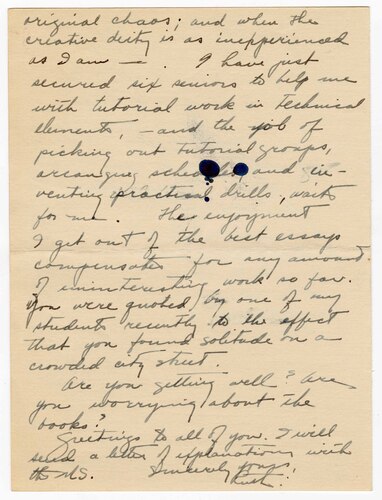 original chaos; and when the
creative deity is as inexperienced
as I am — . I have just
secured six seniors to help me
with tutorial work in technical
elements, — and the job of
picking out tutorial groups,
arranging and in-
venting practical drills, waits
for me. The enjoyment
I get out of the best essays
compensates for any amount
of uninteresting work so far.
You were quoted by one of my
students recently to the effect
that you found solitude on a
crowded city street.
Are you getting well? Are
you worrying about the
books?
Greetings to all of you. I will
send a letter of explanation with
the MS. Sincerely yours,
Ruth.